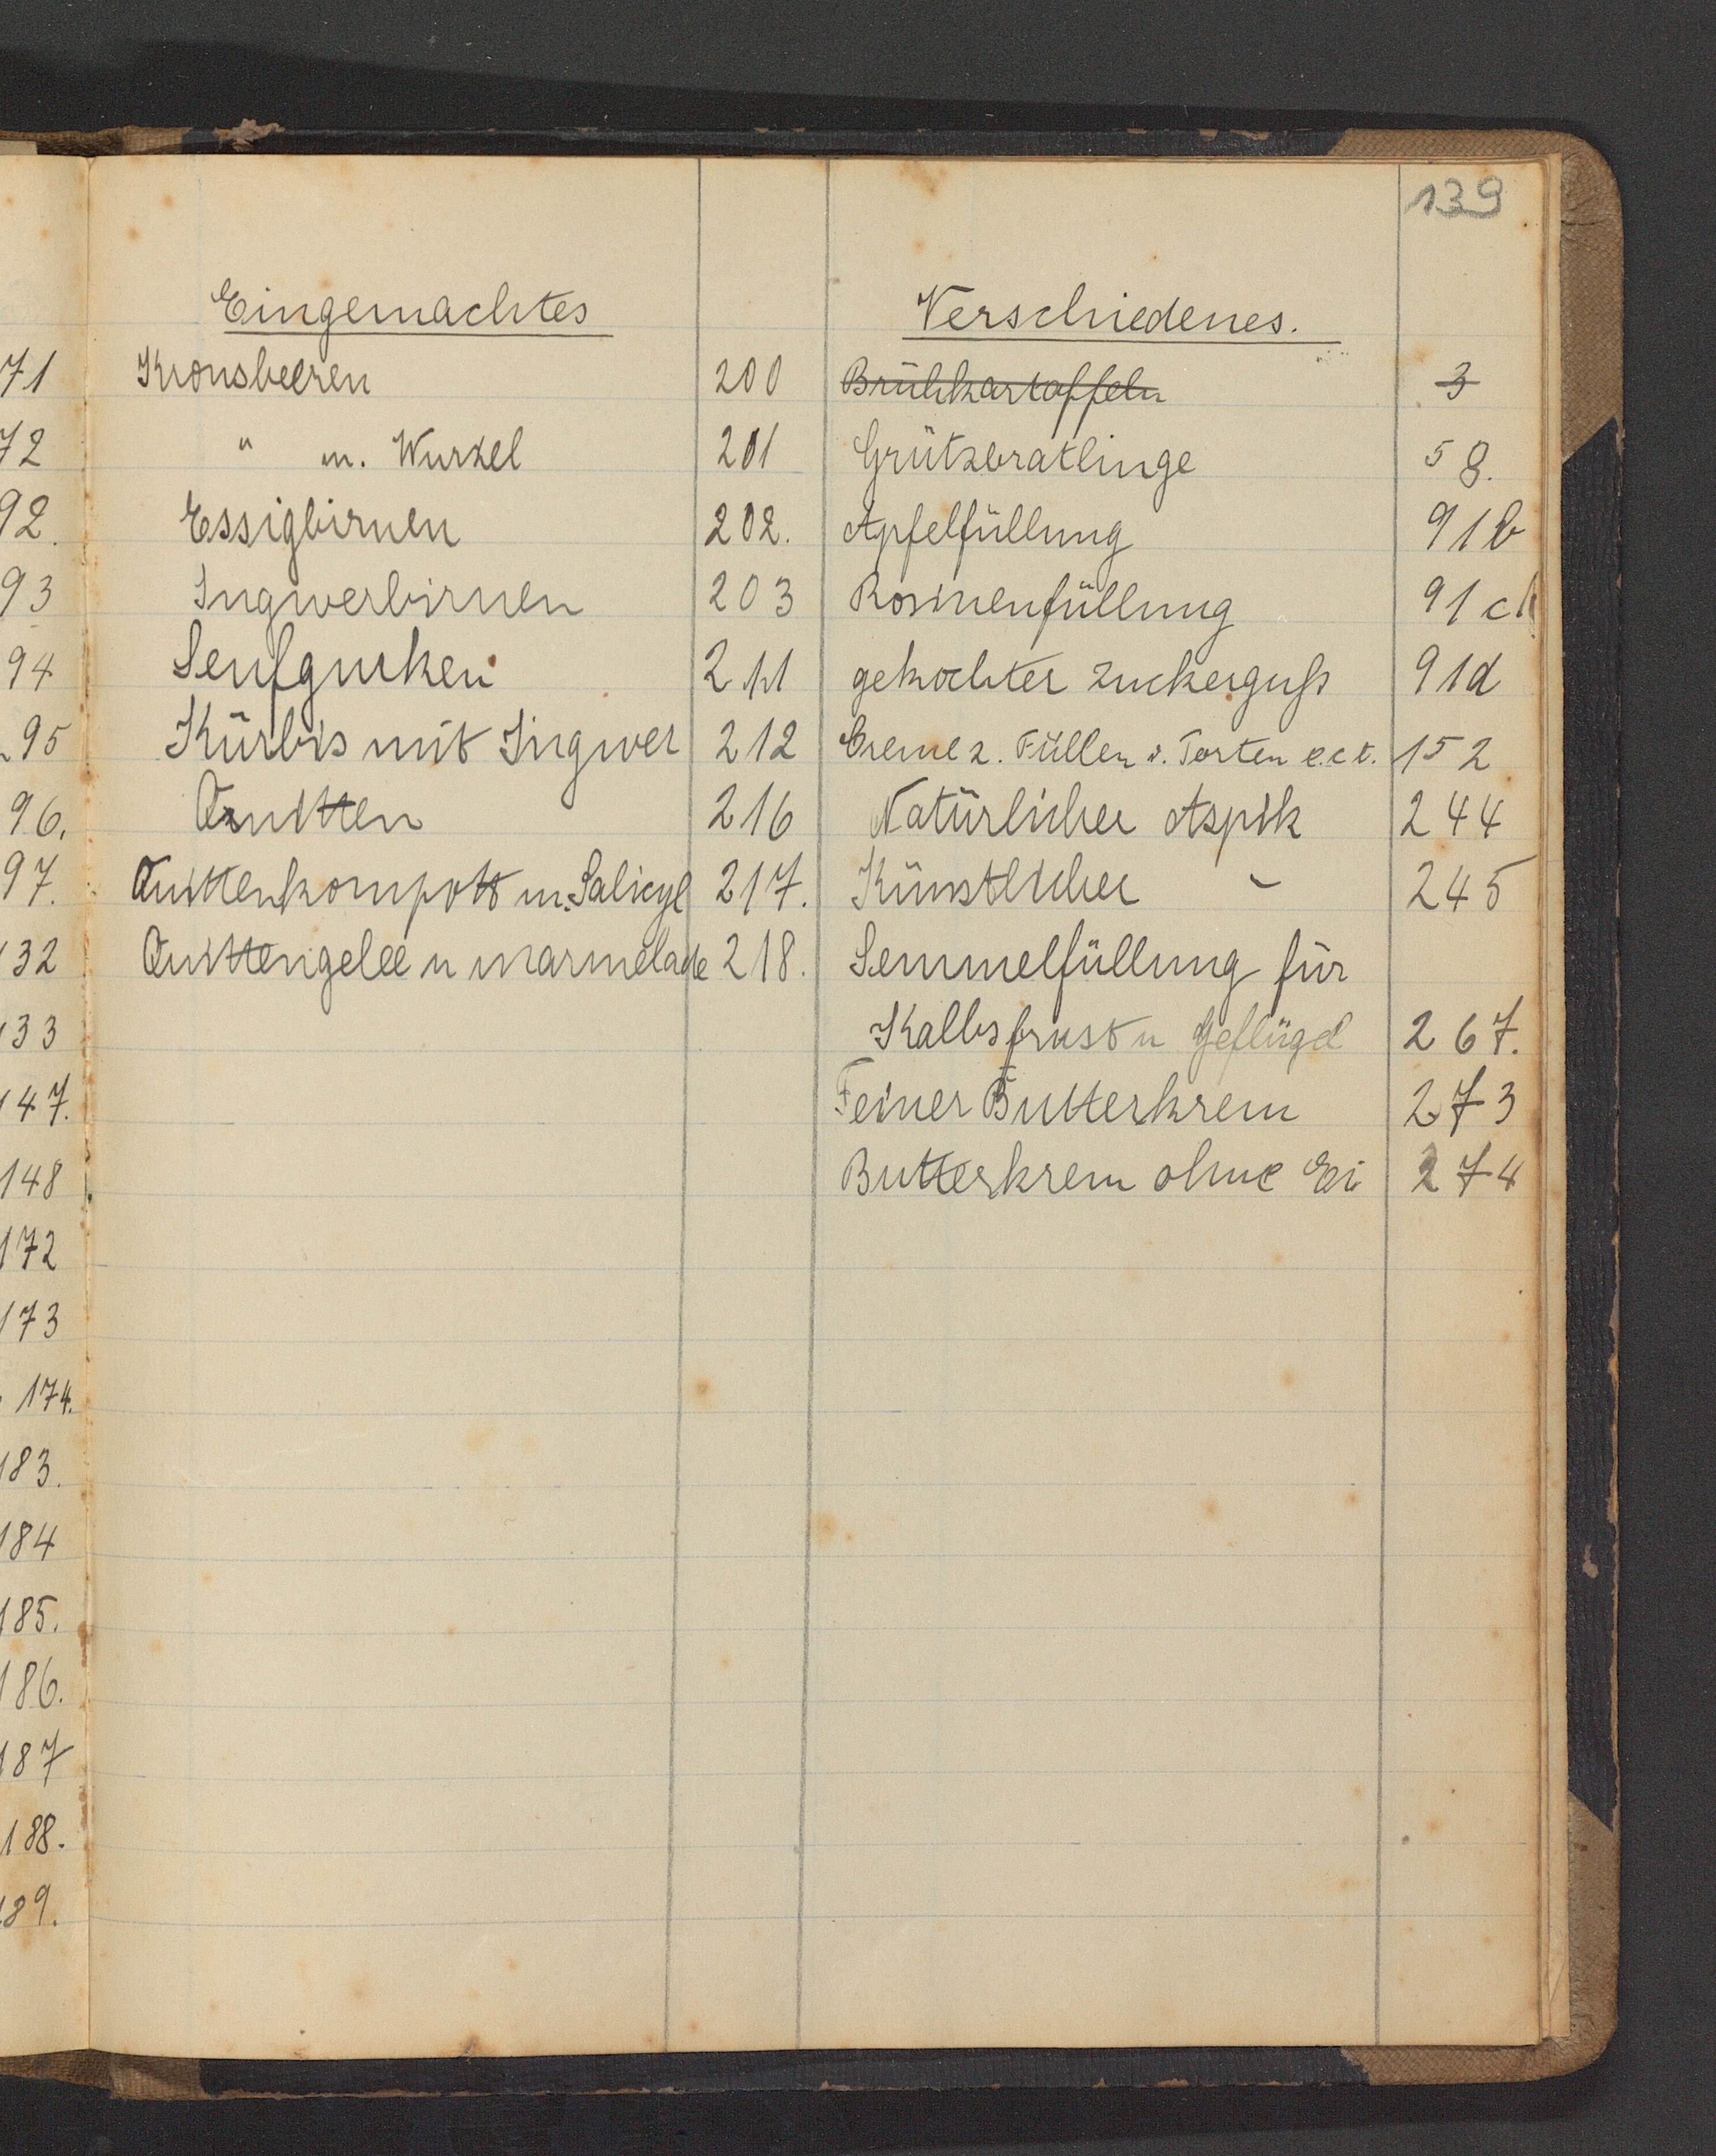 139
Eingemachtes
Kronsbeeren 200
" m. Wurzel 201
Essigbirnen 202.
Ingwerbirnen 203
Senfgurken 211
Kürbis mit Ingwer 212
Quitten 216
Quittenkompott m. Salicyl 217.
Quittengelee u marmelade 218.
Verschiedenes.
Brühkartoffeln 3
Grützbratlinge 58.
Apfelfüllung 91b
Rosinenfüllung 91c
gekochter Zuckerguß 91d
Creme z. Füllen v. Torten e.c.t. 152
Natürlicher Aspik 244
Künstlicher - 245
Semmelfüllung für
Kalbsbrust u Geflügel 267.
Feiner Butterkrem 273
Butterkrem ohne Ei 274
71
72
92.
93
94
95
96.
97.
132
133
147.
148
172
173
174.
183.
184
185.
186.
187
188.
189.